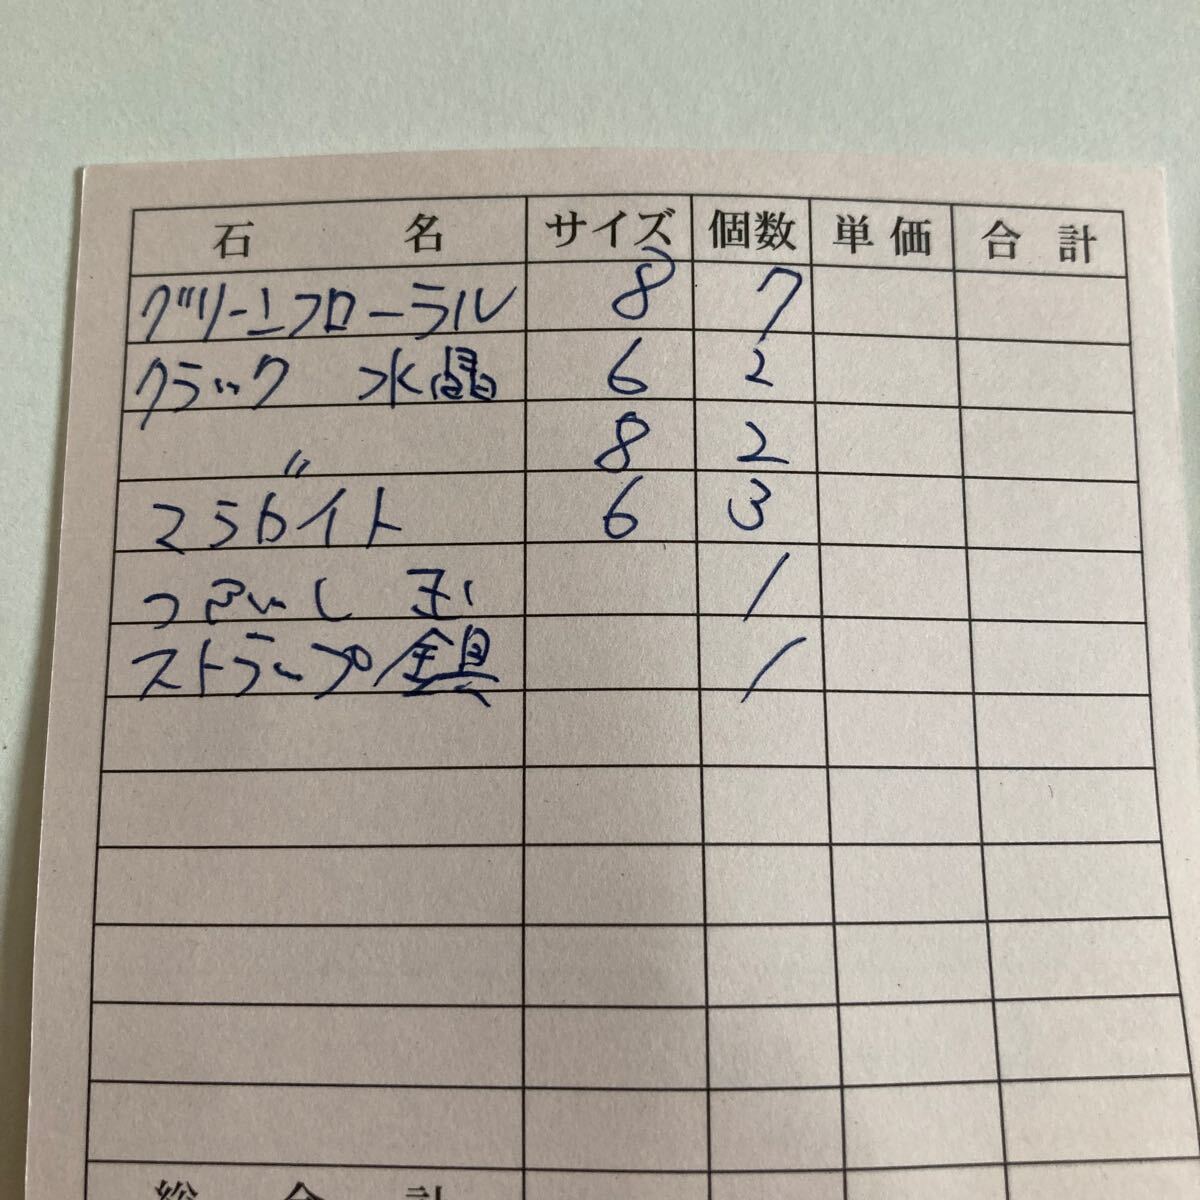 石名 サイズ 個数 単価 合計
グリーンフローラル 8 7
クラック 水晶 6 2
〃 8 2
マラカイト 6 3
1
ストラップ金具 1
総合計